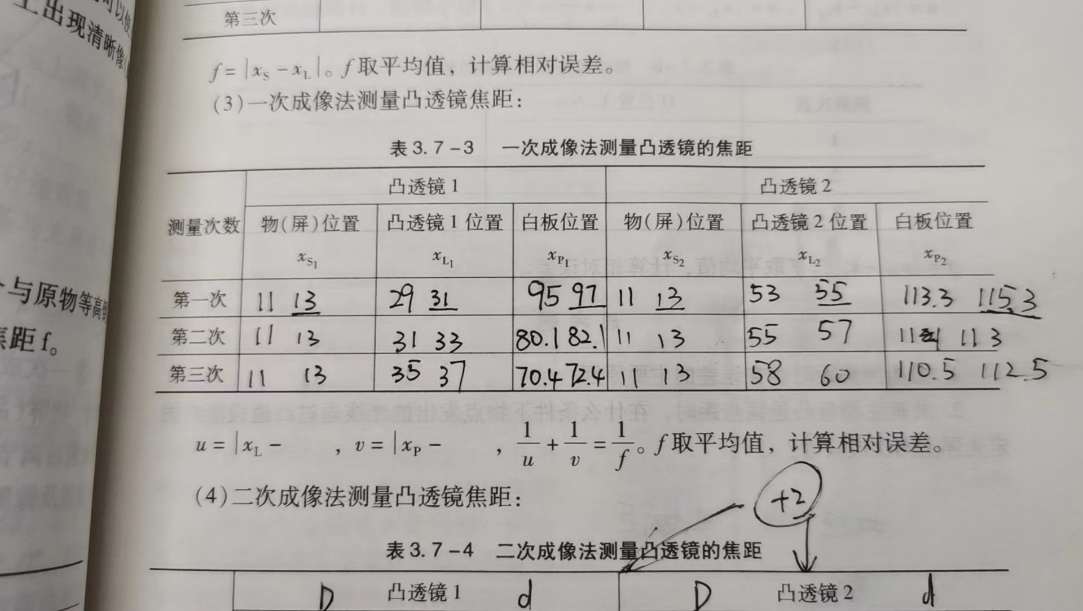 可以使
第三次
上出现清晰像
f=|xS-xL|。f取平均值，计算相对误差。
(3)一次成像法测量凸透镜焦距：
表3.7-3 一次成像法测量凸透镜的焦距
测量次数 凸透镜1 凸透镜2
物(屏)位置 xS1 凸透镜1位置 xL1 白板位置 xP1 物(屏)位置 xS2 凸透镜2位置 xL2 白板位置 xP2
第一次 11 13 29 31 95 97 11 13 53 55 113.3 115.3
第二次 11 13 31 33 80.1 82.1 11 13 55 57 113
第三次 11 13 35 37 70.4 72.4 11 13 58 60 110.5 112.5
与原物等高
焦距f。
u=|xL- ，v=|xP- ，1/u+1/v=1/f。f取平均值，计算相对误差。
(4)二次成像法测量凸透镜焦距：
+2
表3.7-4 二次成像法测量凸透镜的焦距
D 凸透镜1 d D 凸透镜2 d